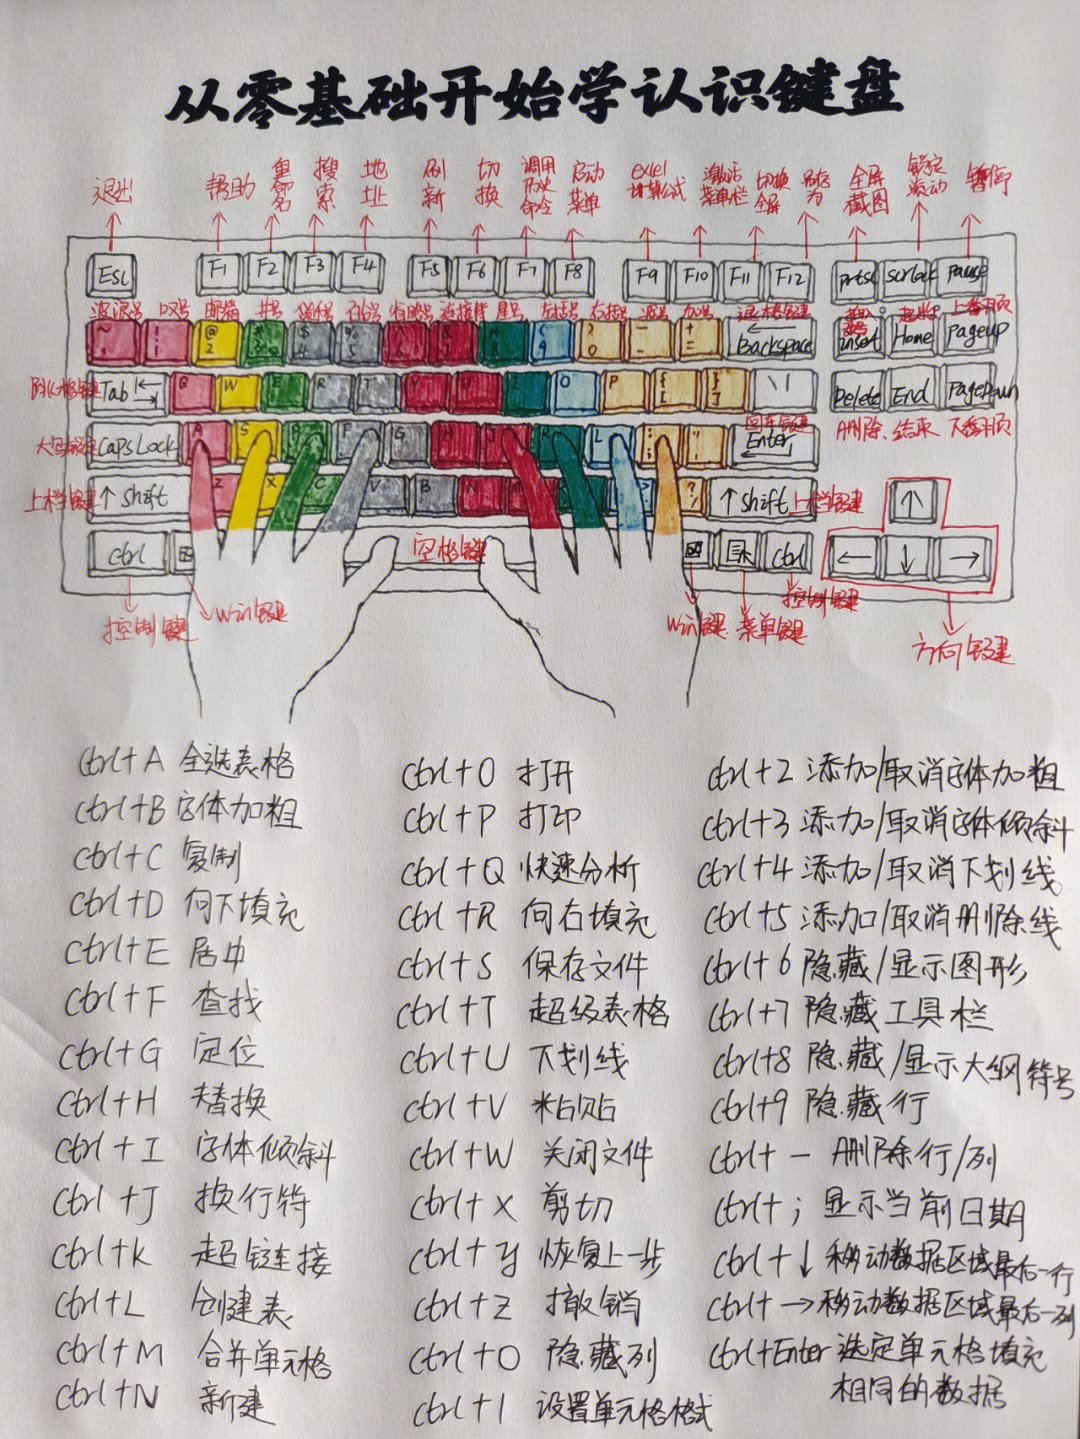 从零基础开始学认识键盘
退出 帮助 重命名 搜索 地址 刷新 切换 调用历史命令 启动菜单 excel计算公式 激活菜单栏 切换全屏 另存为 全屏截图 锁定滚动 暂停
Esc F1 F2 F3 F4 F5 F6 F7 F8 F9 F10 F11 F12 prtsc scrlock pause
波浪号 叹号 邮箱 井号 百分号 省略号 连接符 星号 左括号 右括号 加号 退格键 上翻页
~ ! @ 2 # $ 4 % 5 & 7 ( 9 ) 0 _ - + = ← Backspace insert Home Pageup
Tab Q W E R T Y U I O P { [ } ] \ | Delete End PageDown
回车键 删除 结束 下翻页
大写锁键 CapsLock A S D F G L : ; Enter
上档键 ↑ shift Z X C V B N > ? / ↑ shift 上档键 ↑
ctrl 空格键 ctrl ← ↓ →
控制键 win键 win键 菜单键 控制键 方向键
ctrl+A 全选表格
ctrl+B 字体加粗
ctrl+C 复制
ctrl+D 向下填充
ctrl+E 居中
ctrl+F 查找
ctrl+G 定位
ctrl+H 替换
ctrl+I 字体倾斜
ctrl+J 换行符
ctrl+k 超链接
ctrl+L 创建表
ctrl+M 合并单元格
ctrl+N 新建
ctrl+O 打开
ctrl+P 打印
ctrl+Q 快速分析
ctrl+R 向右填充
ctrl+S 保存文件
ctrl+T 超级表格
ctrl+U 下划线
ctrl+V 粘贴
ctrl+W 关闭文件
ctrl+X 剪切
ctrl+y 恢复上一步
ctrl+Z 撤销
ctrl+0 隐藏列
ctrl+1 设置单元格格式
ctrl+2 添加/取消字体加粗
ctrl+3 添加/取消字体倾斜
ctrl+4 添加/取消下划线
ctrl+5 添加/取消删除线
ctrl+6 隐藏/显示图形
ctrl+7 隐藏工具栏
ctrl+8 隐藏/显示大纲符号
ctrl+9 隐藏行
ctrl+- 删除行/列
ctrl+; 显示当前日期
ctrl+↓ 移动数据区域最后一行
ctrl+→ 移动数据区域最后一列
ctrl+Enter 选定单元格填充
相同的数据